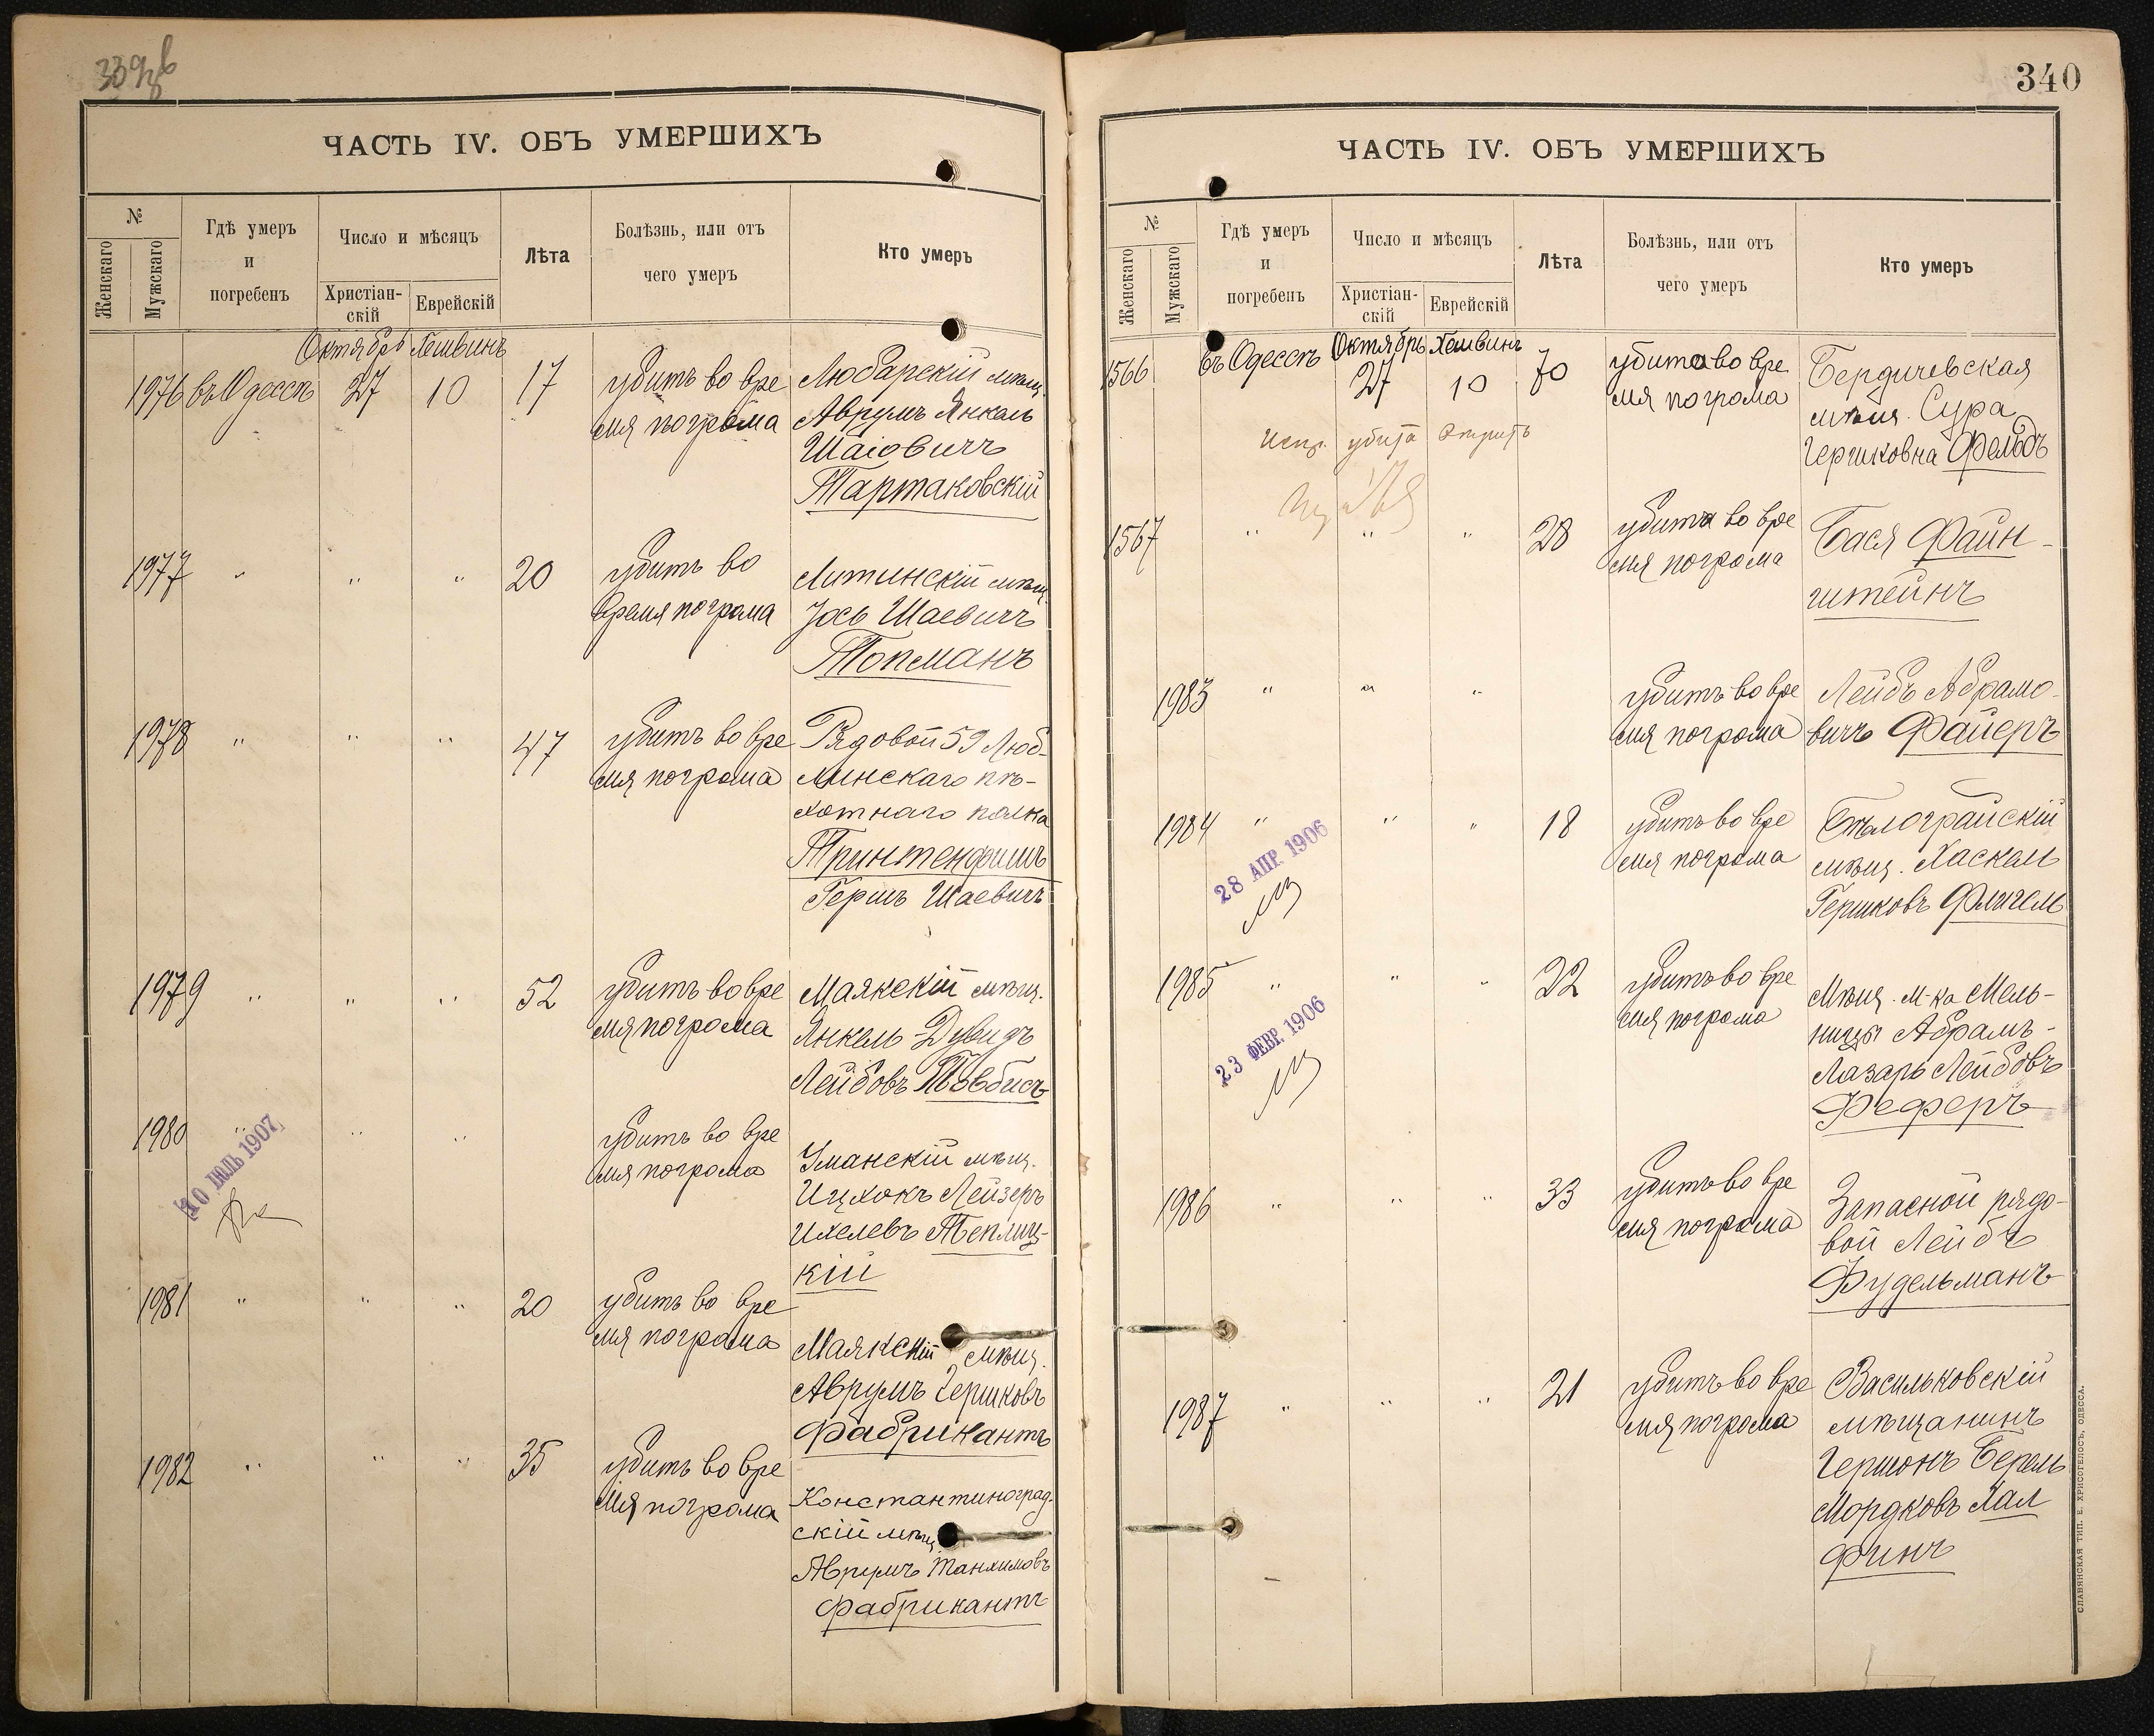 339
ЧАСТЬ IV. ОБЪ УМЕРШИХЪ
№
Женскаго
Мужскаго
Гдѣ умеръ
и
погребенъ
Число и мѣсяцъ
Христіан-
скій
Еврейскій
Лѣта
Болѣзнь, или отъ
чего умеръ
Кто умеръ
Октябрь Хешвинъ
1976 въ Одессѣ 27 10 17 убитъ во вре
мя погрома
Любарскій мѣщ.
Аврумъ Янкель
Шаіовичъ
Тартаковскій
1977 " " " 20 убитъ во
время погрома
Литинскій мѣщ.
Іось Шаевичъ
Топманъ
1978 " " " 47 убитъ во вре
мя погрома
Рядовой 59 Люб-
линскаго пѣ-
хотнаго полка
Тринтенфишъ
Гершъ Шаевичъ
1979 " " " 52 убитъ во вре
мя погрома
Маякскій мѣщ.
Янкель-Дувидъ
Лейбовъ
1980 " " " убитъ во вре
мя погрома
10 ІЮЛЬ 1907
Уманскій мѣщ.
Ицхокъ Лейзеръ
Ихелевъ Теплиц-
кій
1981 " " " 20 убитъ во вре
мя погрома
Маякскій мѣщ.
Аврумъ Гершковъ
Фабрикантъ
1982 " " " 35 убитъ во вре
мя погрома
Константиноград-
скій мѣщ
Аврумъ Танхимовъ
Фабрикантъ
340
ЧАСТЬ IV. ОБЪ УМЕРШИХЪ
№
Женскаго
Мужскаго
Гдѣ умеръ
и
погребенъ
Число и мѣсяцъ
Христіан-
скій
Еврейскій
Лѣта
Болѣзнь, или отъ
чего умеръ
Кто умеръ
Октябрь Хешвинъ
1566 въ Одессѣ 27 10 70 убита во вре
мя погрома
Бердичевская
мѣщ. Сура
Гершковна Фельдъ
1567 " " " 28 убита во вре
мя погрома
Бася Файн-
штейнъ
1983 " " " убитъ во вре
мя погрома
Лейбъ Абрамо-
вичъ Файеръ
1984 " " " 18 убитъ во вре
мя погрома
28 АПР. 1906
Бѣлограйскій
мѣщ. Хаскель
Гершковъ Флигель
1985 " " " 22 убитъ во вре
мя погрома
23 ФЕВР. 1906
Мѣщ. м-ка Мель-
ницы Абрамъ-
Лазарь Лейбовъ
Феферъ
1986 " " " 33 убитъ во вре
мя погрома
Запасной рядо-
вой Лейбъ
Фудельманъ
1987 " " " 21 убитъ во вре
мя погрома
Васильковскій
мѣщанинъ
Гершонъ Берель
Мордковъ Хал
финъ
СЛАВЯНСКАЯ ТИП. Е. ХРИСОГЕЛОСЪ, ОДЕССА.